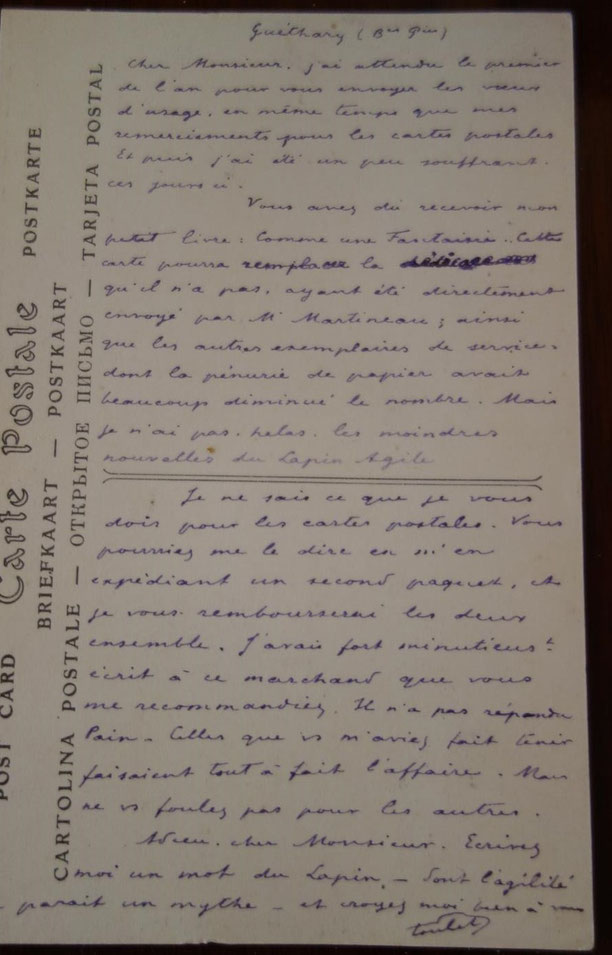 Guéthary (Bses Pées)
cher Monsieur, j'ai attendu le premier
de l'an pour vous envoyer les vœux
d'usage, en même temps que mes
remerciements pour les cartes postales
Et puis j'ai été un peu souffrant.
ces jours ci.
Vous avez dû recevoir mon
petit livre : Comme une Fantaisie. Cette
carte pourra remplacer la dédicace
qu'il n'a pas, ayant été directement
envoyé par Mr Martineau ; ainsi
que les autres exemplaires de service.
dont la pénurie de papier avait
beaucoup diminué le nombre. Mais
je n'ai pas, helas, les moindres
nouvelles du Lapin Agile
Je ne sais ce que je vous
dois pour les cartes postales. Vous
pourriez me le dire en m'en
expédiant un second paquet, et
je vous rembourserai les deux
ensemble. J'avais fort minutieust
écrit à ce marchand que vous
me recommandiez. Il n'a pas répondu
Pain - Celles que vs m'aviez fait tenir
faisaient tout à fait l'affaire. Mais
ne vs foulez pas pour les autres.
Adieu, cher Monsieur. Ecrivez
moi un mot du Lapin, - dont l'agilité
parait un mythe - et croyez moi bien à vous
toulet
POST CARD Carte Postale POSTKARTE
BRIEFKAART — POSTKAART
CARTOLINA POSTALE — ОТКРЫТОЕ ПИСЬМО — TARJETA POSTAL